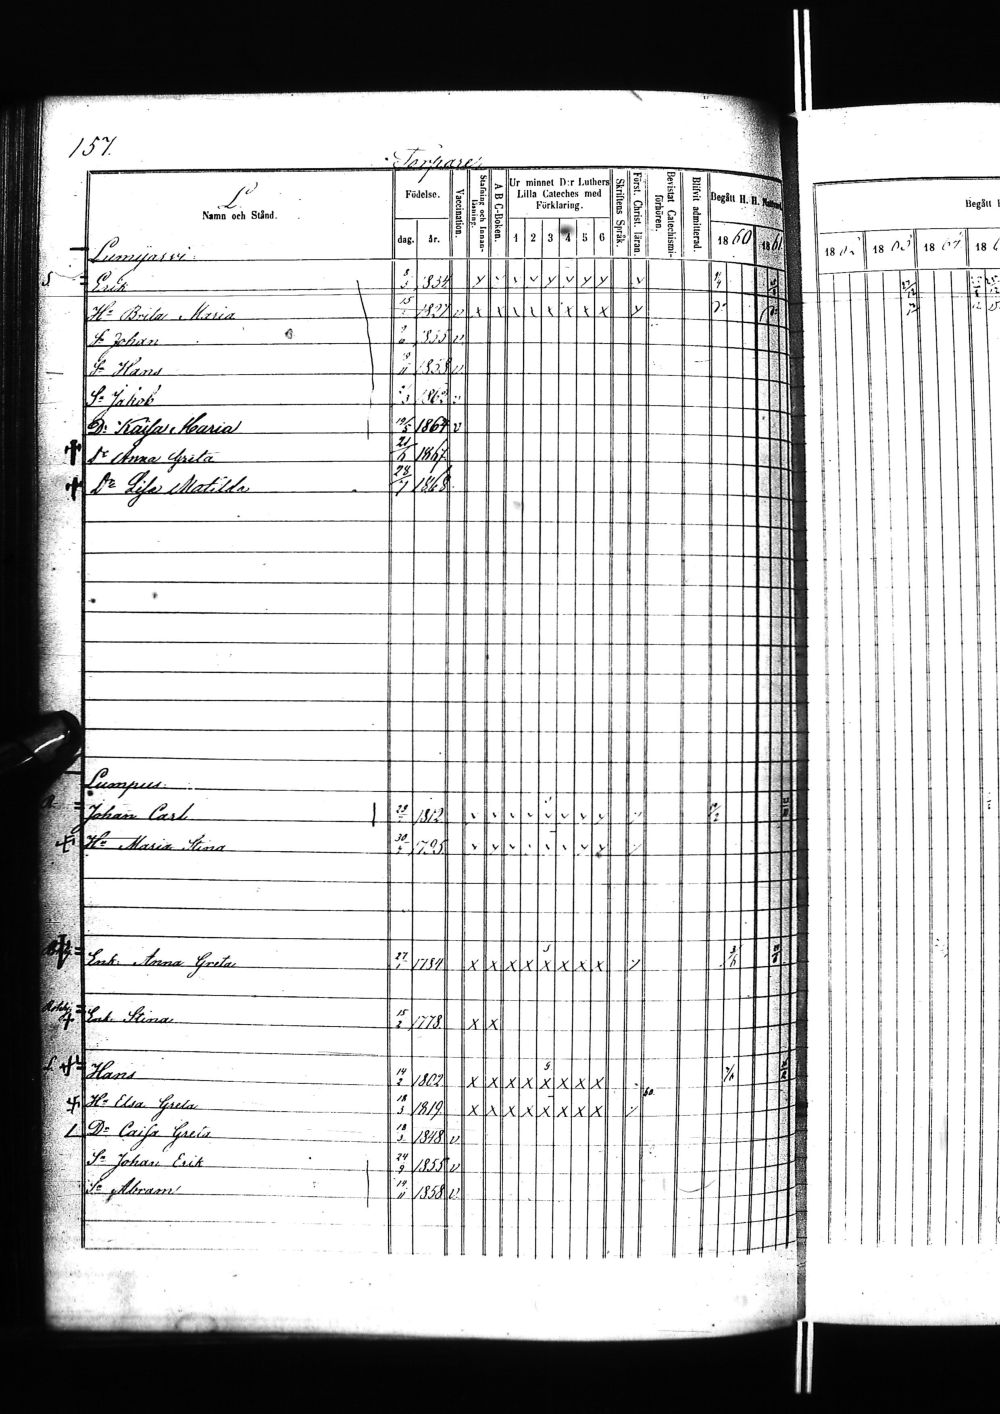 157.
Torpare
L.
Namn och Stånd.
Födelse.
dag. år.
Vaccination.
Stafning och Innan-läsning.
A B C-Boken.
Ur minnet D:r Luthers Lilla Cateches med Förklaring.
1 2 3 4 5 6
Skriftens Språk.
Först. Christ. läran.
Bevistat Catechismi-förhören.
Blifvit admitterad.
Begått H. H. Nattvard
1860 1861
Begått
18 1863 1864 18
Lumijärvi
S Erik 1834
Hu Brita Maria 15 1827 v
Sn Johan 1855 v
Sn Hans 11 1858 v
Sn Jakob 3 1862 v
Dr Kajsa Maria 19/5 1864 v
Dr Anna Greta 21/6 1867
Dr Lisa Matilda 28/7 1868
Lumpus
Johan Carl 23 1812
Hu Maria Stina 30 1795
Enk. Anna Greta 27 1784 x x x x x x x x
Enk. Stina 15/2 1778 x x
Hans 14/2 1802 x x x x x x x x
Hu Elsa Greta 18/3 1819 x x x x x x x x
60.
Dr Caisa Greta 18/3 1848 v
Sn Johan Erik 24/9 1855 v
Sn Abram 19/11 1858 v